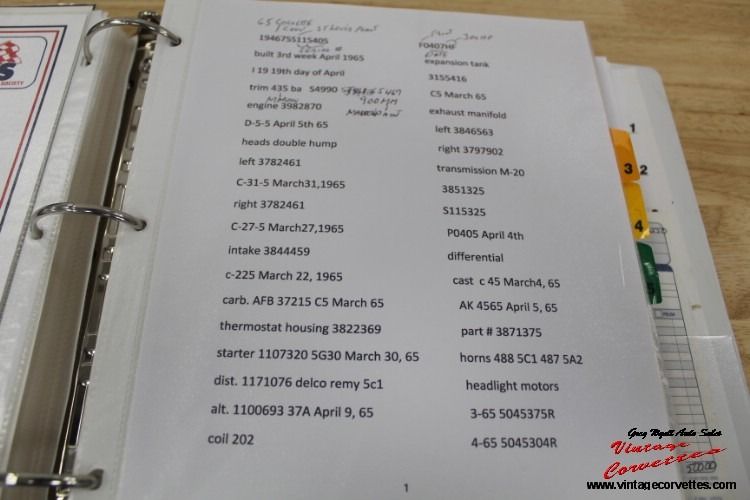 S
SOCIETY
65 Corvette
1946755115405
built 3rd week April 1965
I 19 19th day of April
trim 435 ba S4990
engine 3982870
900 MM
D-5-5 April 5th 65
heads double hump
left 3782461
C-31-5 March31,1965
right 3782461
C-27-5 March27,1965
intake 3844459
c-225 March 22, 1965
carb. AFB 37215 C5 March 65
thermostat housing 3822369
starter 1107320 5G30 March 30, 65
dist. 1171076 delco remy 5c1
alt. 1100693 37A April 9, 65
coil 202
300 HP
F0407HF
Date
expansion tank
3155416
C5 March 65
exhaust manifold
left 3846563
right 3797902
transmission M-20
3851325
S115325
P0405 April 4th
differential
cast c 45 March4, 65
AK 4565 April 5, 65
part # 3871375
horns 488 5C1 487 5A2
headlight motors
3-65 5045375R
4-65 5045304R
1
1
2
3
4
500.00
Greg Wyatt Auto Sales
Vintage
Corvettes
www.vintagecorvettes.com